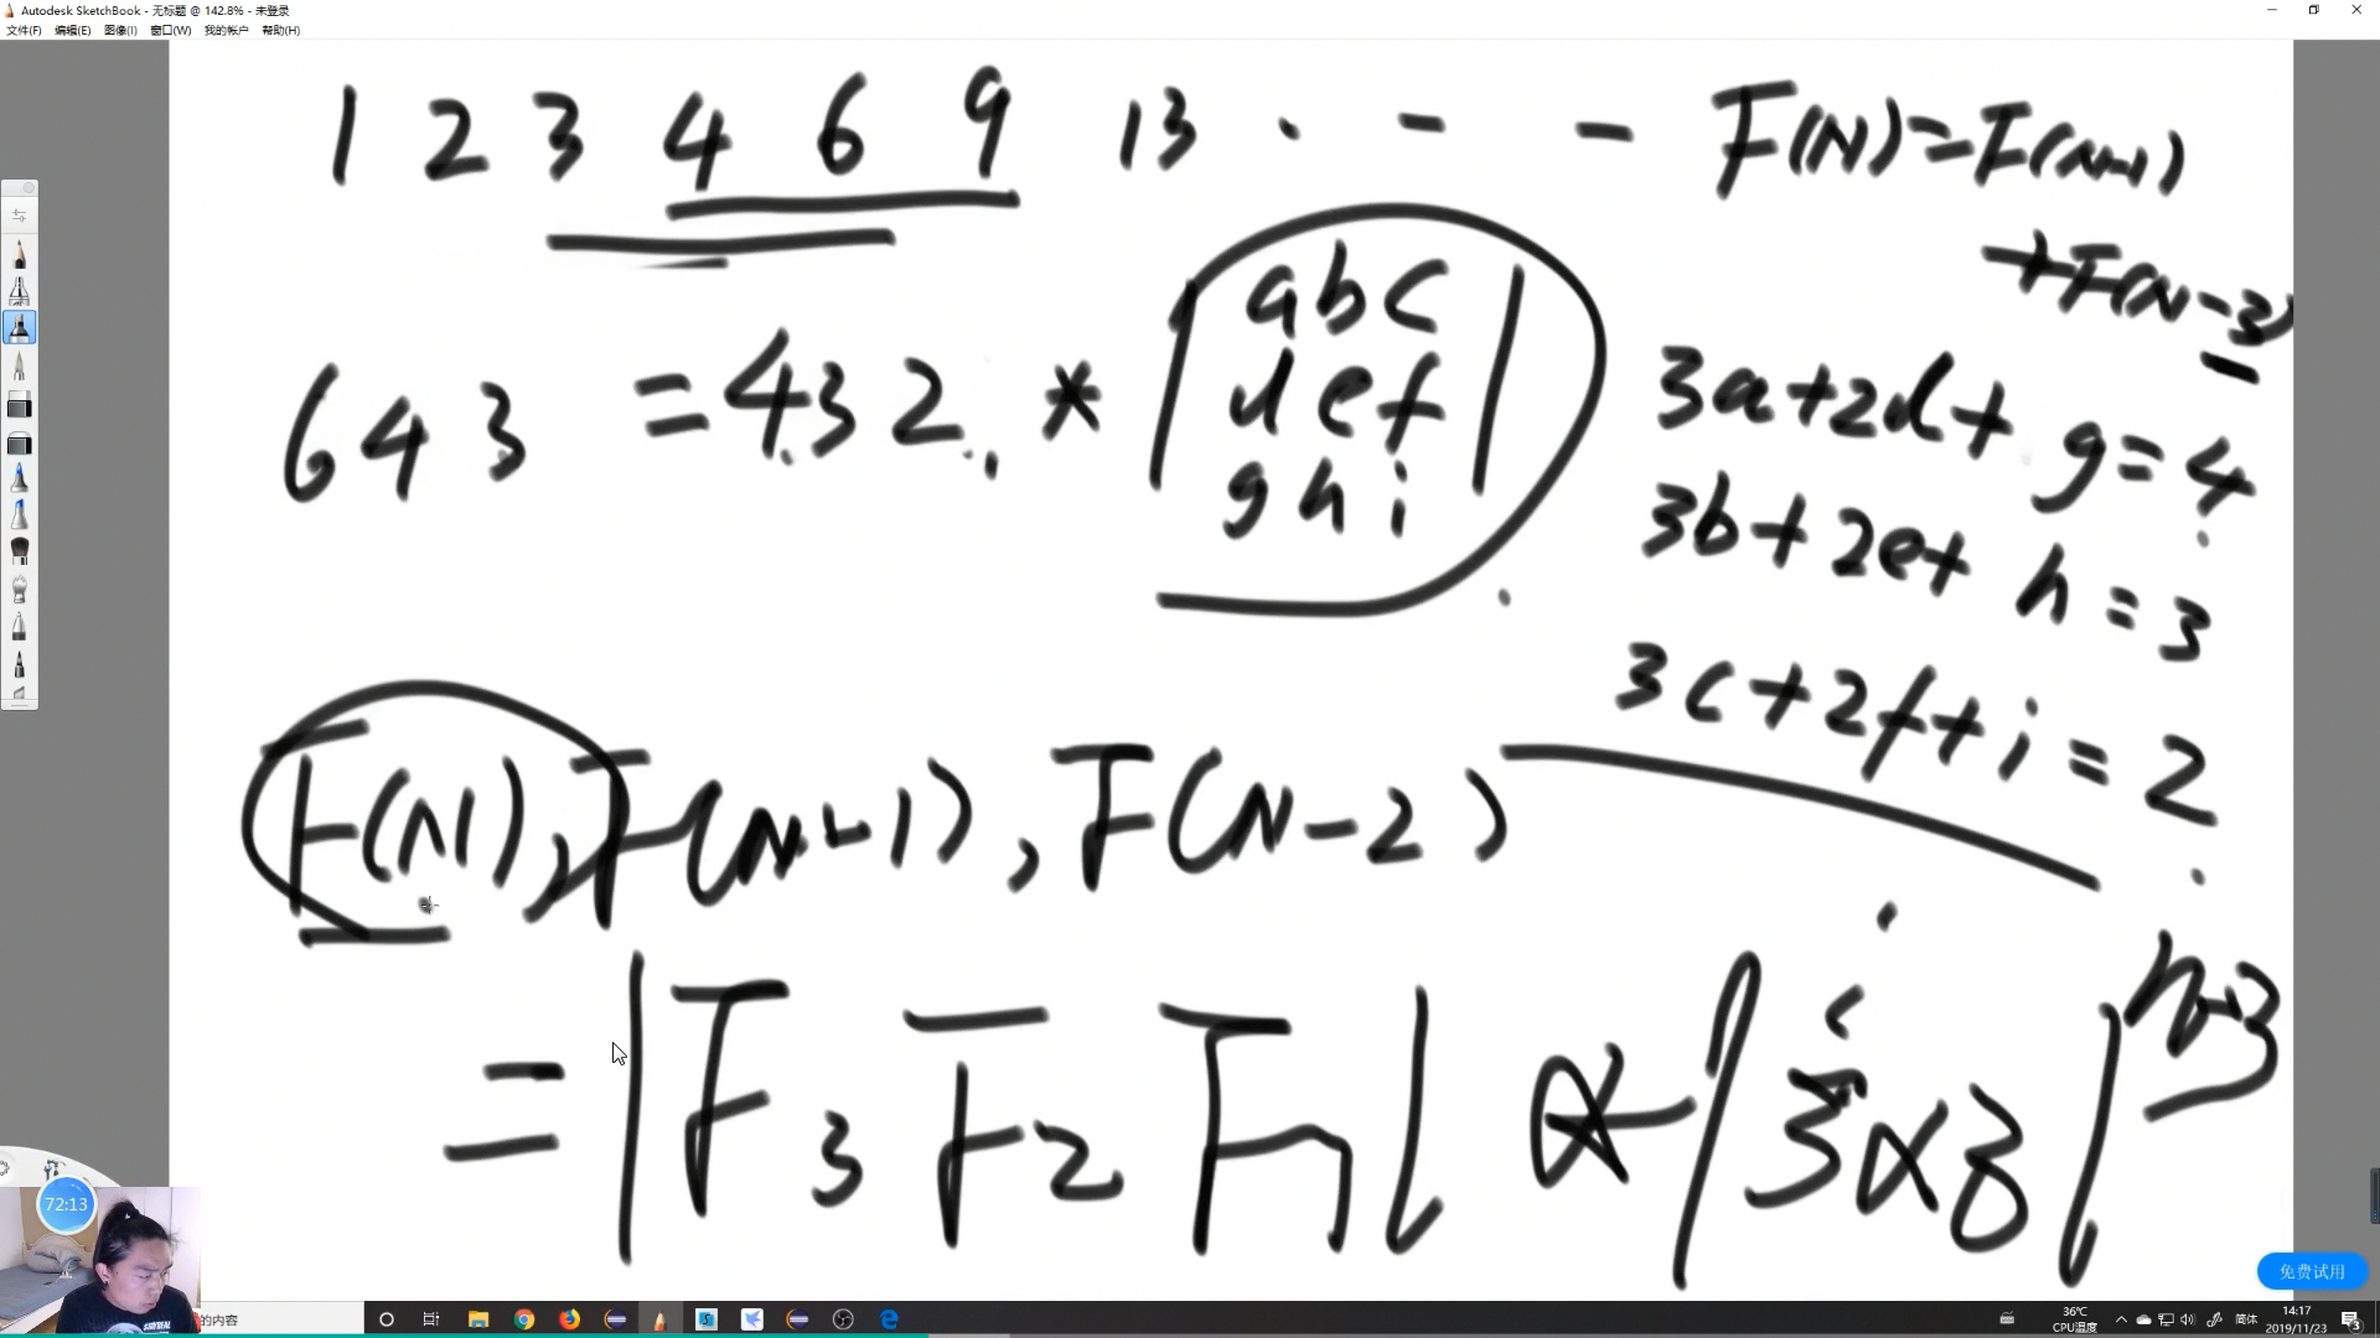 Autodesk SketchBook - 无标题 @ 142.8% - 未登录
文件(F) 编辑(E) 图像(I) 窗口(W) 我的帐户 帮助(H)
1 2 3 4 6 9 13 . - - F(N)=F(N-1)
+F(N-3)
6 4 3 = 4 3 2 * | a b c |
| d e f |
| g h i |
3a+2d+g=4
3b+2e+h=3
3c+2f+i=2
F(N), F(N-1), F(N-2)
= | F3 F2 F1 | * | 3×3 | n-3
72:13
免费试用
的内容
36℃
CPU温度
简体
14:17
2019/11/23
3